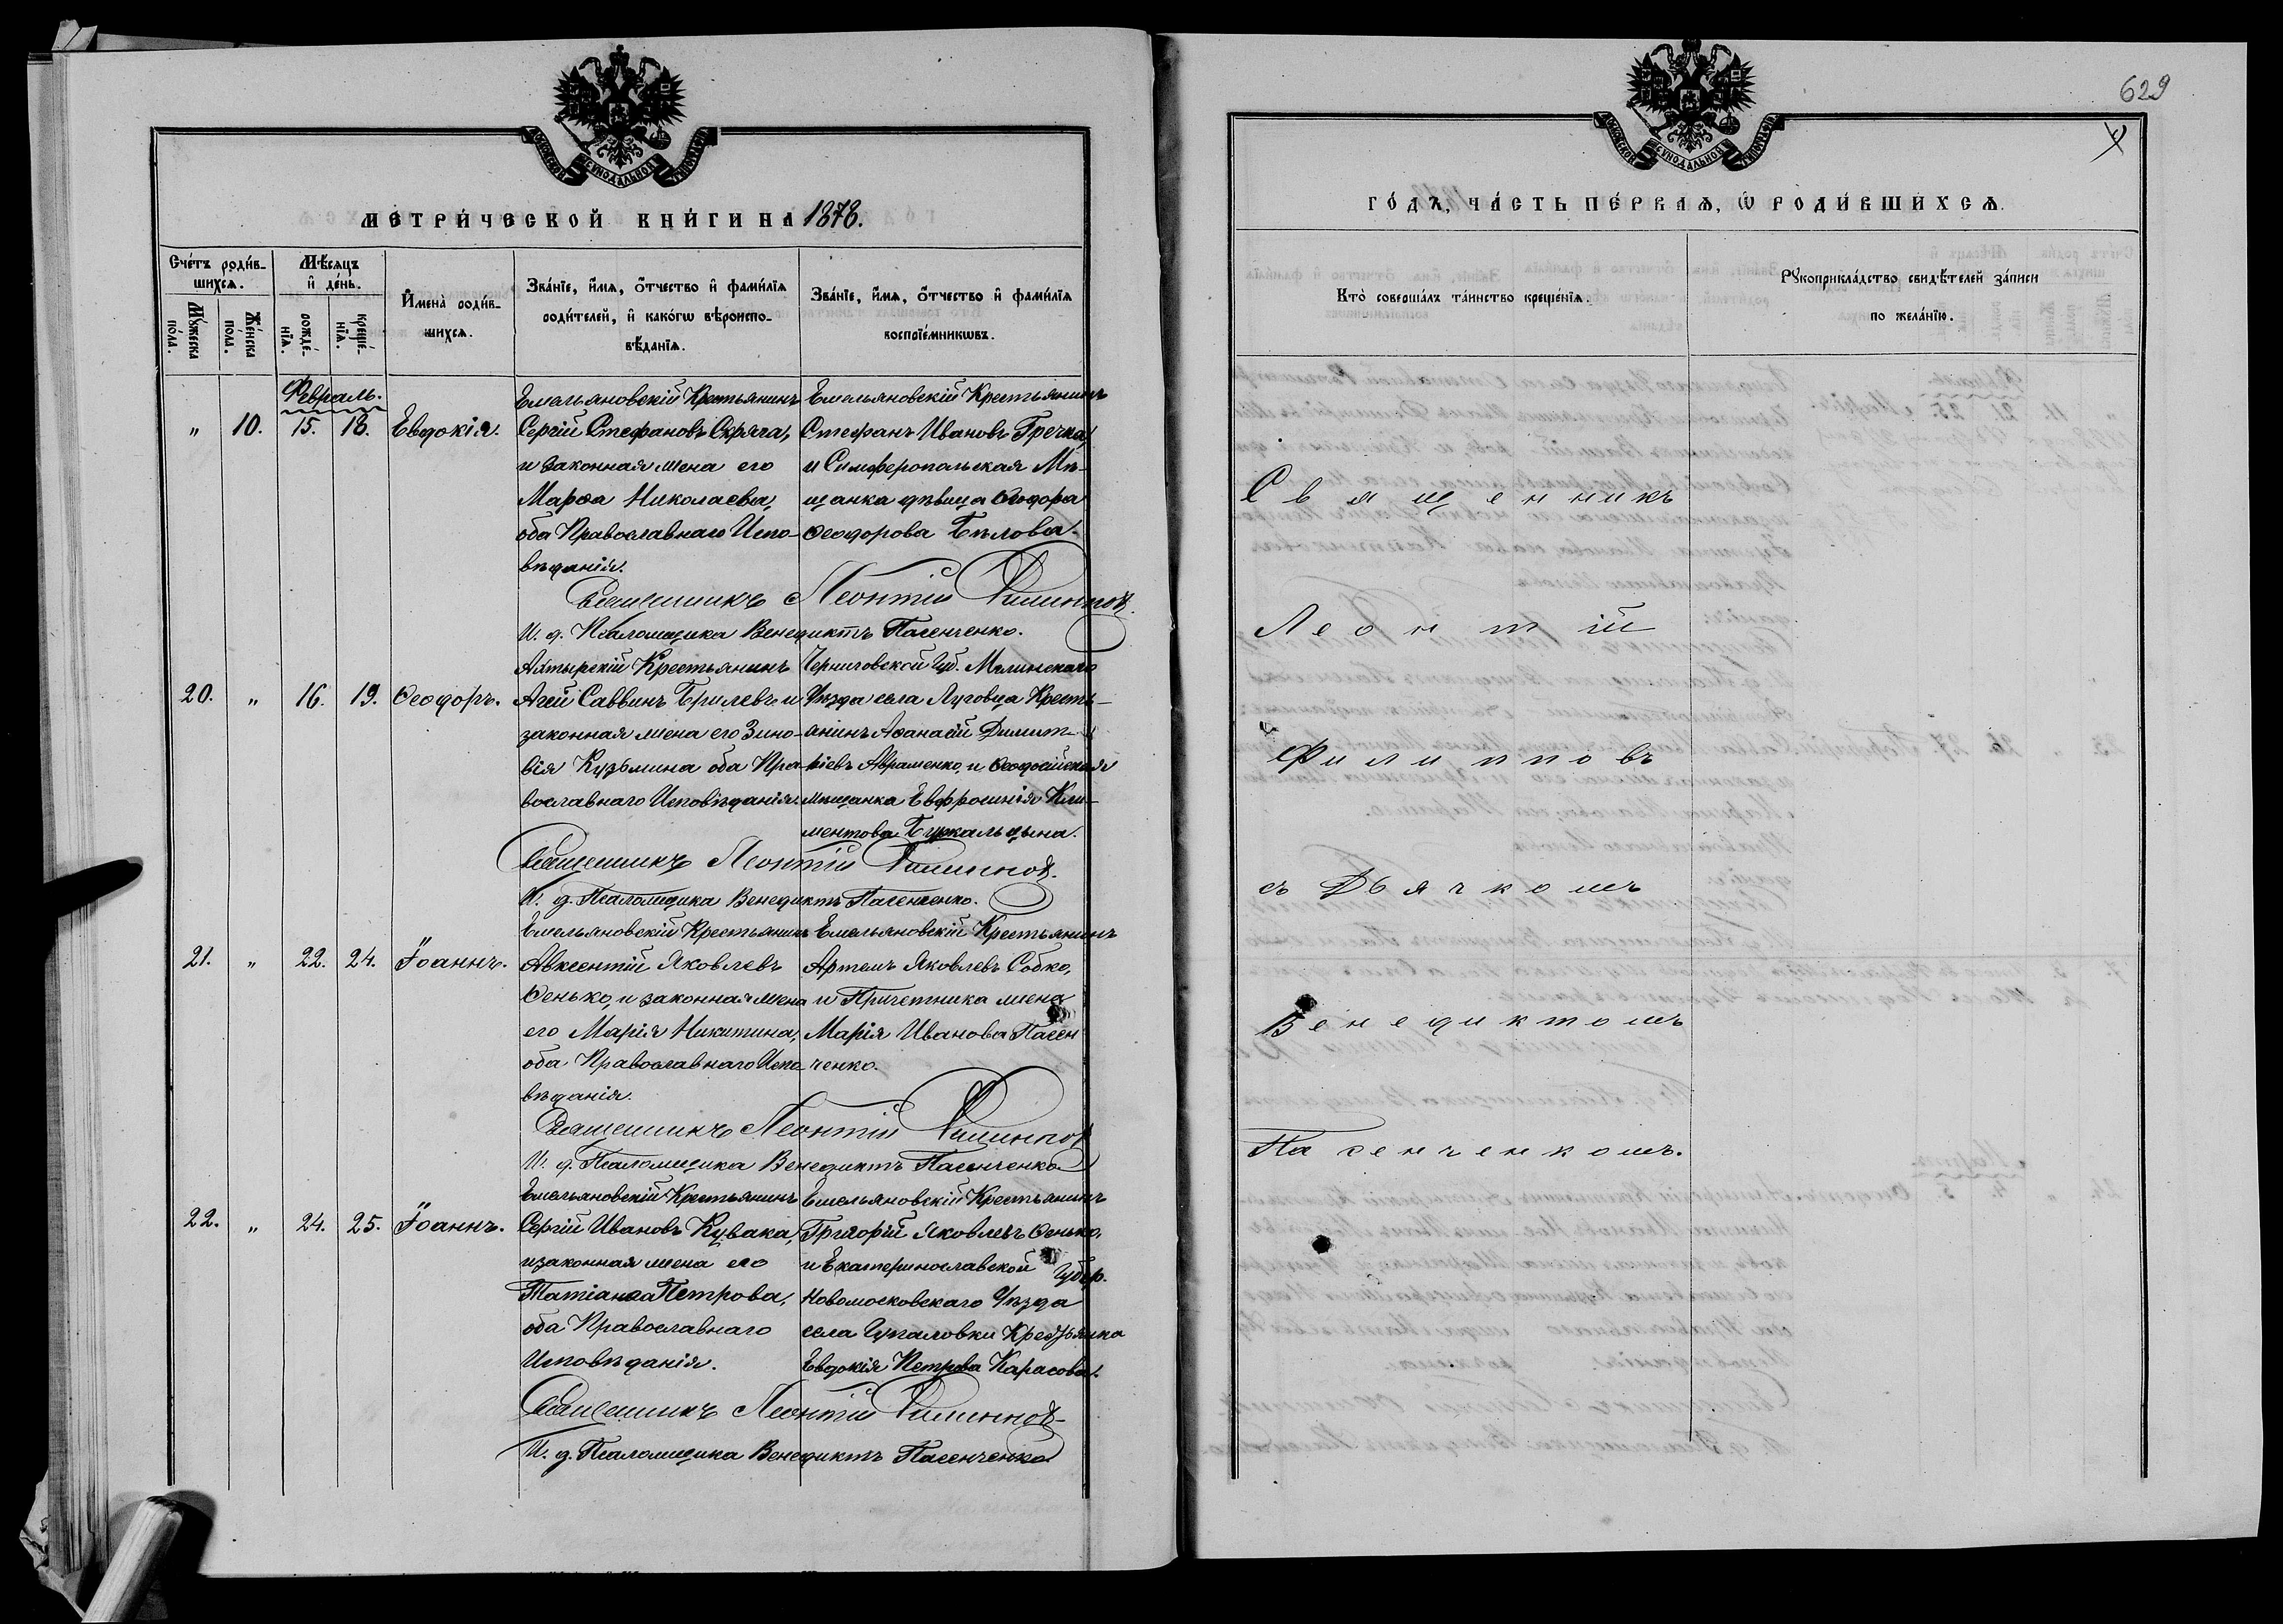 МОСКОВСКОЙ СѴНОДАЛЬНОЙ ТИПОГРАФІИ
МЕТРИ́ЧЕСКОЙ КНИ́ГИ НА 1878.
Сче́тъ роди́в-
шихсѧ.
Мѣ́сѧцъ
и҆ де́нь.
Мꙋ́жеска
по́ла.
Же́нска
по́ла.
рожде́-
нїѧ.
креще́-
нїѧ.
И҆мена̀ роди́в-
шихсѧ.
Зва́нїе, и҆́мѧ, ѻ҆́тчество и҆ фами́лїѧ
роди́телей, и҆ како́гѡ вѣроиспо-
вѣ́данїѧ.
Зва́нїе, и҆́мѧ, ѻ҆́тчество и҆ фами́лїѧ
воспрїе́мникѡвъ.
Февраль.
" 10. 15. 18. Евдокія.
Емельяновскій Крестьянинъ
Сергій Стефановъ Скряга,
и законная жена его
Марѳа Николаева,
оба Православнаго Испо-
вѣданія.
Емельяновскій Крестьянинъ
Стефанъ Ивановъ Гречка,
и Симферопольская Мѣ-
щанка дѣвица Ѳеодора
Ѳеодорова Бѣлова.
Священникъ Леонтій Филипповъ.
И. д. Псаломщика Венедиктъ Пасенченко.
20. " 16. 19. Ѳеодоръ.
Ахтырскій Крестьянинъ
Агей Саввинъ Брилевъ и
законная жена его Зино-
вія Кузьмина оба Пра-
вославнаго Исповѣданія.
Черниговской Губ. Мглинскаго
Уѣзда села Луговца Кресть-
янинъ Аѳанасій Димит-
ріевъ Авраменко, и Ѳеодосійская
Мѣщанка Евфросинія Кли-
ментова
Священникъ Леонтій Филипповъ.
И. д. Псаломщика Венедиктъ Пасенченко.
21. " 22. 24. Іоаннъ.
Емельяновскій Крестьянинъ
Авксентій Яковлевъ
Ѳенько, и законная жена
его Марія Никитина,
оба Православнаго Испо-
вѣданія.
Емельяновскій Крестьянинъ
Артемъ Яковлевъ Собко,
и Причетника жена
Марія Иванова Пасен
ченко.
Священникъ Леонтій Филипповъ
И. д. Псаломщика Венедиктъ Пасенченко
22. " 24. 25. Іоаннъ.
Емельяновскій Крестьянинъ
Сергій Ивановъ Кувака,
и законная жена его
Татіана Петрова,
оба Православнаго
Исповѣданія.
Емельяновскій Крестьянинъ
Григорій Яковлевъ Ѳенько,
и Екатеринославской Губер.
Новомосковскаго Уѣзда
села Крестьянка
Евдокія Петрова Карасова.
Священникъ Леонтій Филипповъ
И. д. Псаломщика Венедиктъ Пасенченко
629
МОСКОВСКОЙ СѴНОДАЛЬНОЙ ТИПОГРАФІИ
ГО́ДЪ, ЧА́СТЬ ПЕ́РВАѦ, Ѡ҆ РОДИ́ВШИХСѦ.
Кто̀ соверша́лъ та́инство креще́нїѧ.
Рꙋкоприкла́дство свидѣ́телей за́писи
по жела́нїю.
Священникъ
Леонтій
Филипповъ
съ Дьячкомъ
Венедиктомъ
Пасенченкомъ.